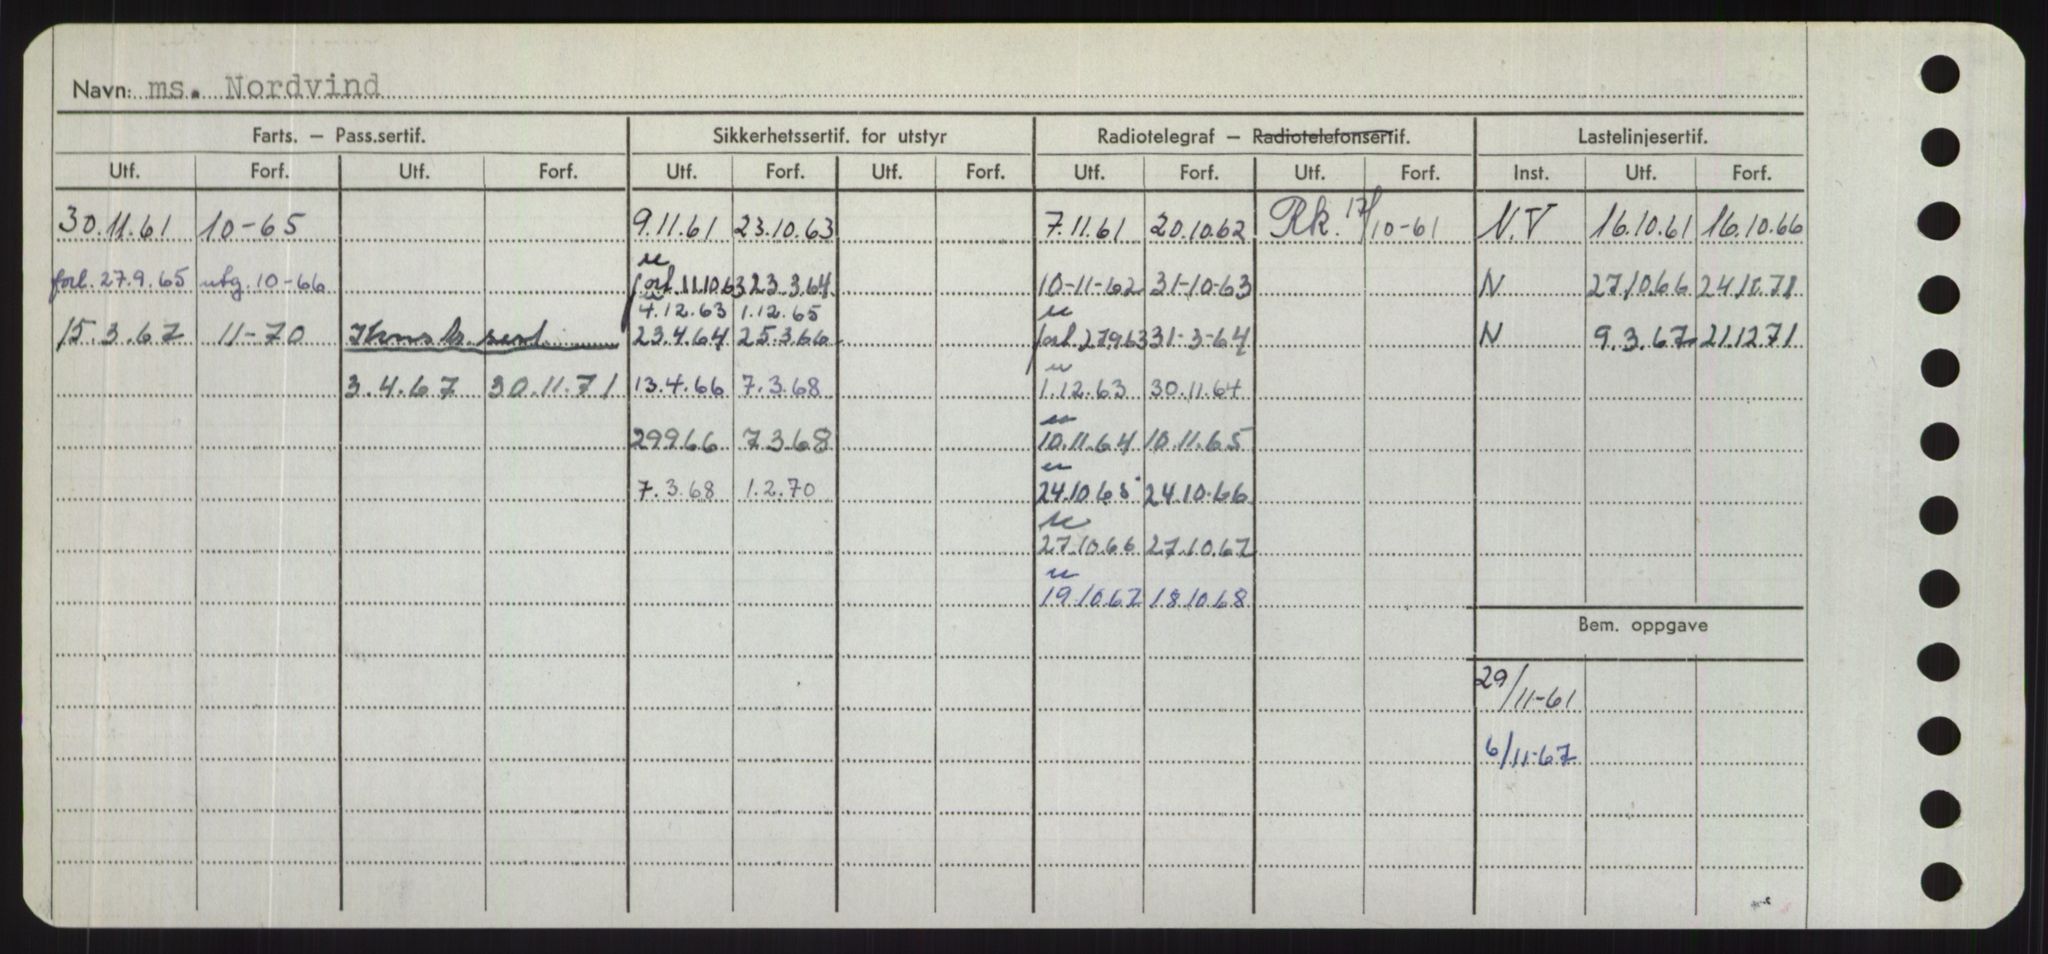 Navn: ms. Nordvind
Farts. – Pass.sertif. Sikkerhetssertif. for utstyr Radiotelegraf – Radiotelefonsertif. Lastelinjesertif.
Utf. Forf. Utf. Forf. Utf. Forf. Utf. Forf. Utf. Forf. Utf. Forf. Inst. Utf. Forf.
30.11.61 10-65 9.11.61 23.10.63 7.11.61 20.10.62 Rk. 17/10-61 N.V 16.10.61 16.10.66
forl. 27.9.65 utg. 10-66 forl. 11.10.63 23.3.64 10-11-62 31-10-63 N 27.10.66
4.12.63 1.12.65
15.3.67 11-70 23.4.64 25.3.66 forl. 27.9.63 31-3-64 N 9.3.67 21.12.71
3.4.67 30.11.71 13.4.66 7.3.68 1.12.63 30.11.64
29.9.66 7.3.68 10.11.64 10.11.65
7.3.68 1.2.70 24.10.65 24.10.66
27.10.66 27.10.67
19.10.67 18.10.68
Bem. oppgave
29/11-61
6/11-67